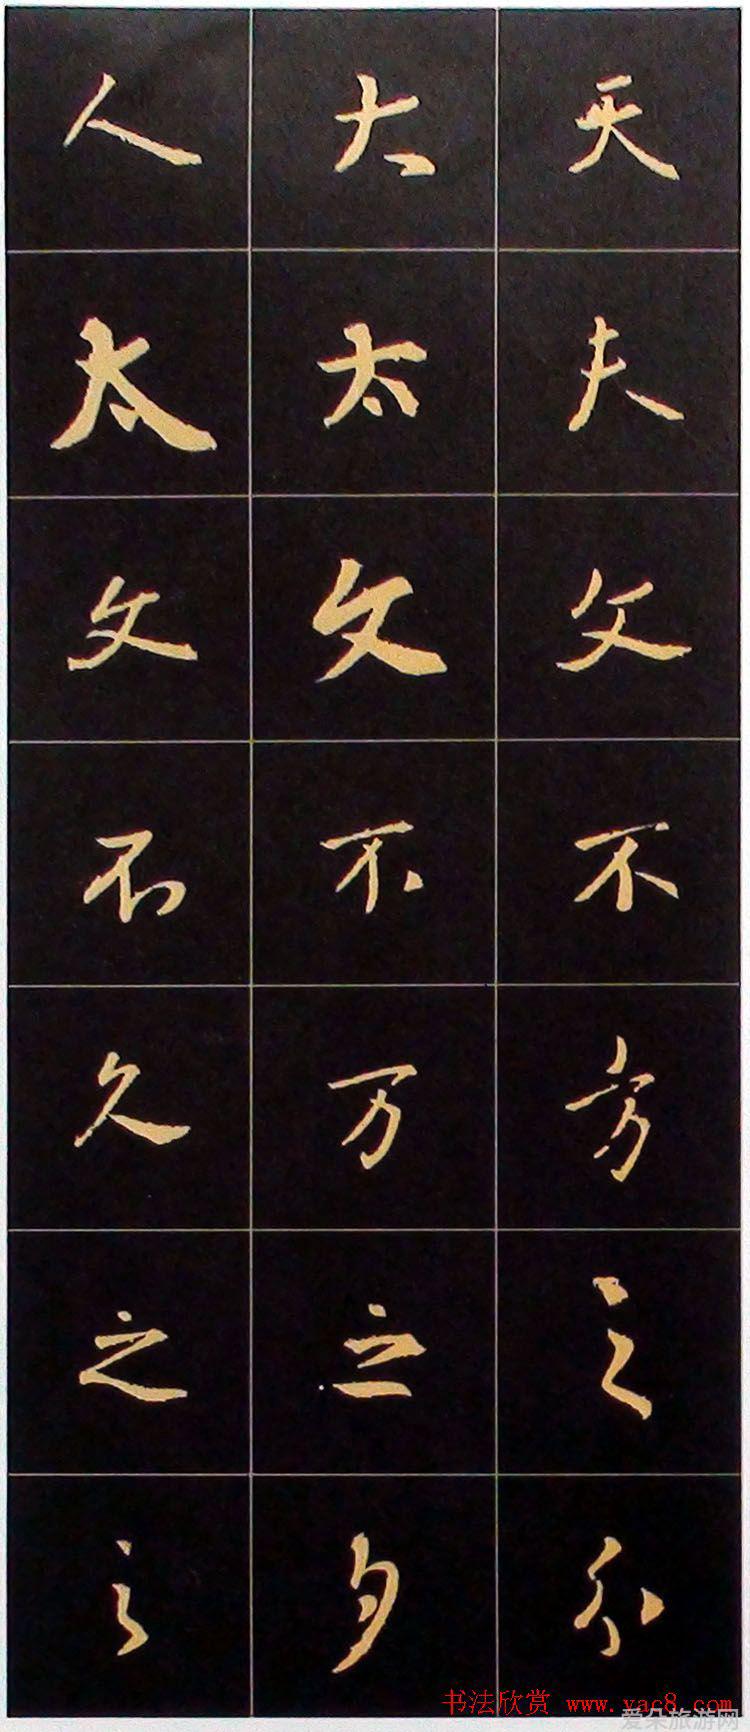 人 大 天
太 太 夫
文 文 父
不 不 不
久 万 方
之 之 之
之
书法欣赏 www.yac8.com
爱朵旅游网